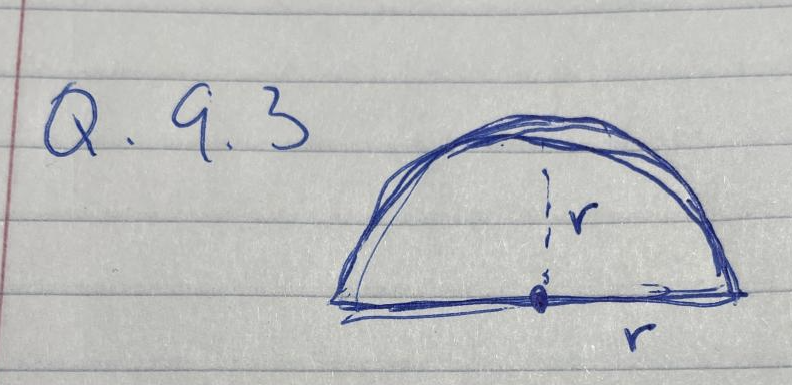 Q. 9.3
r
r